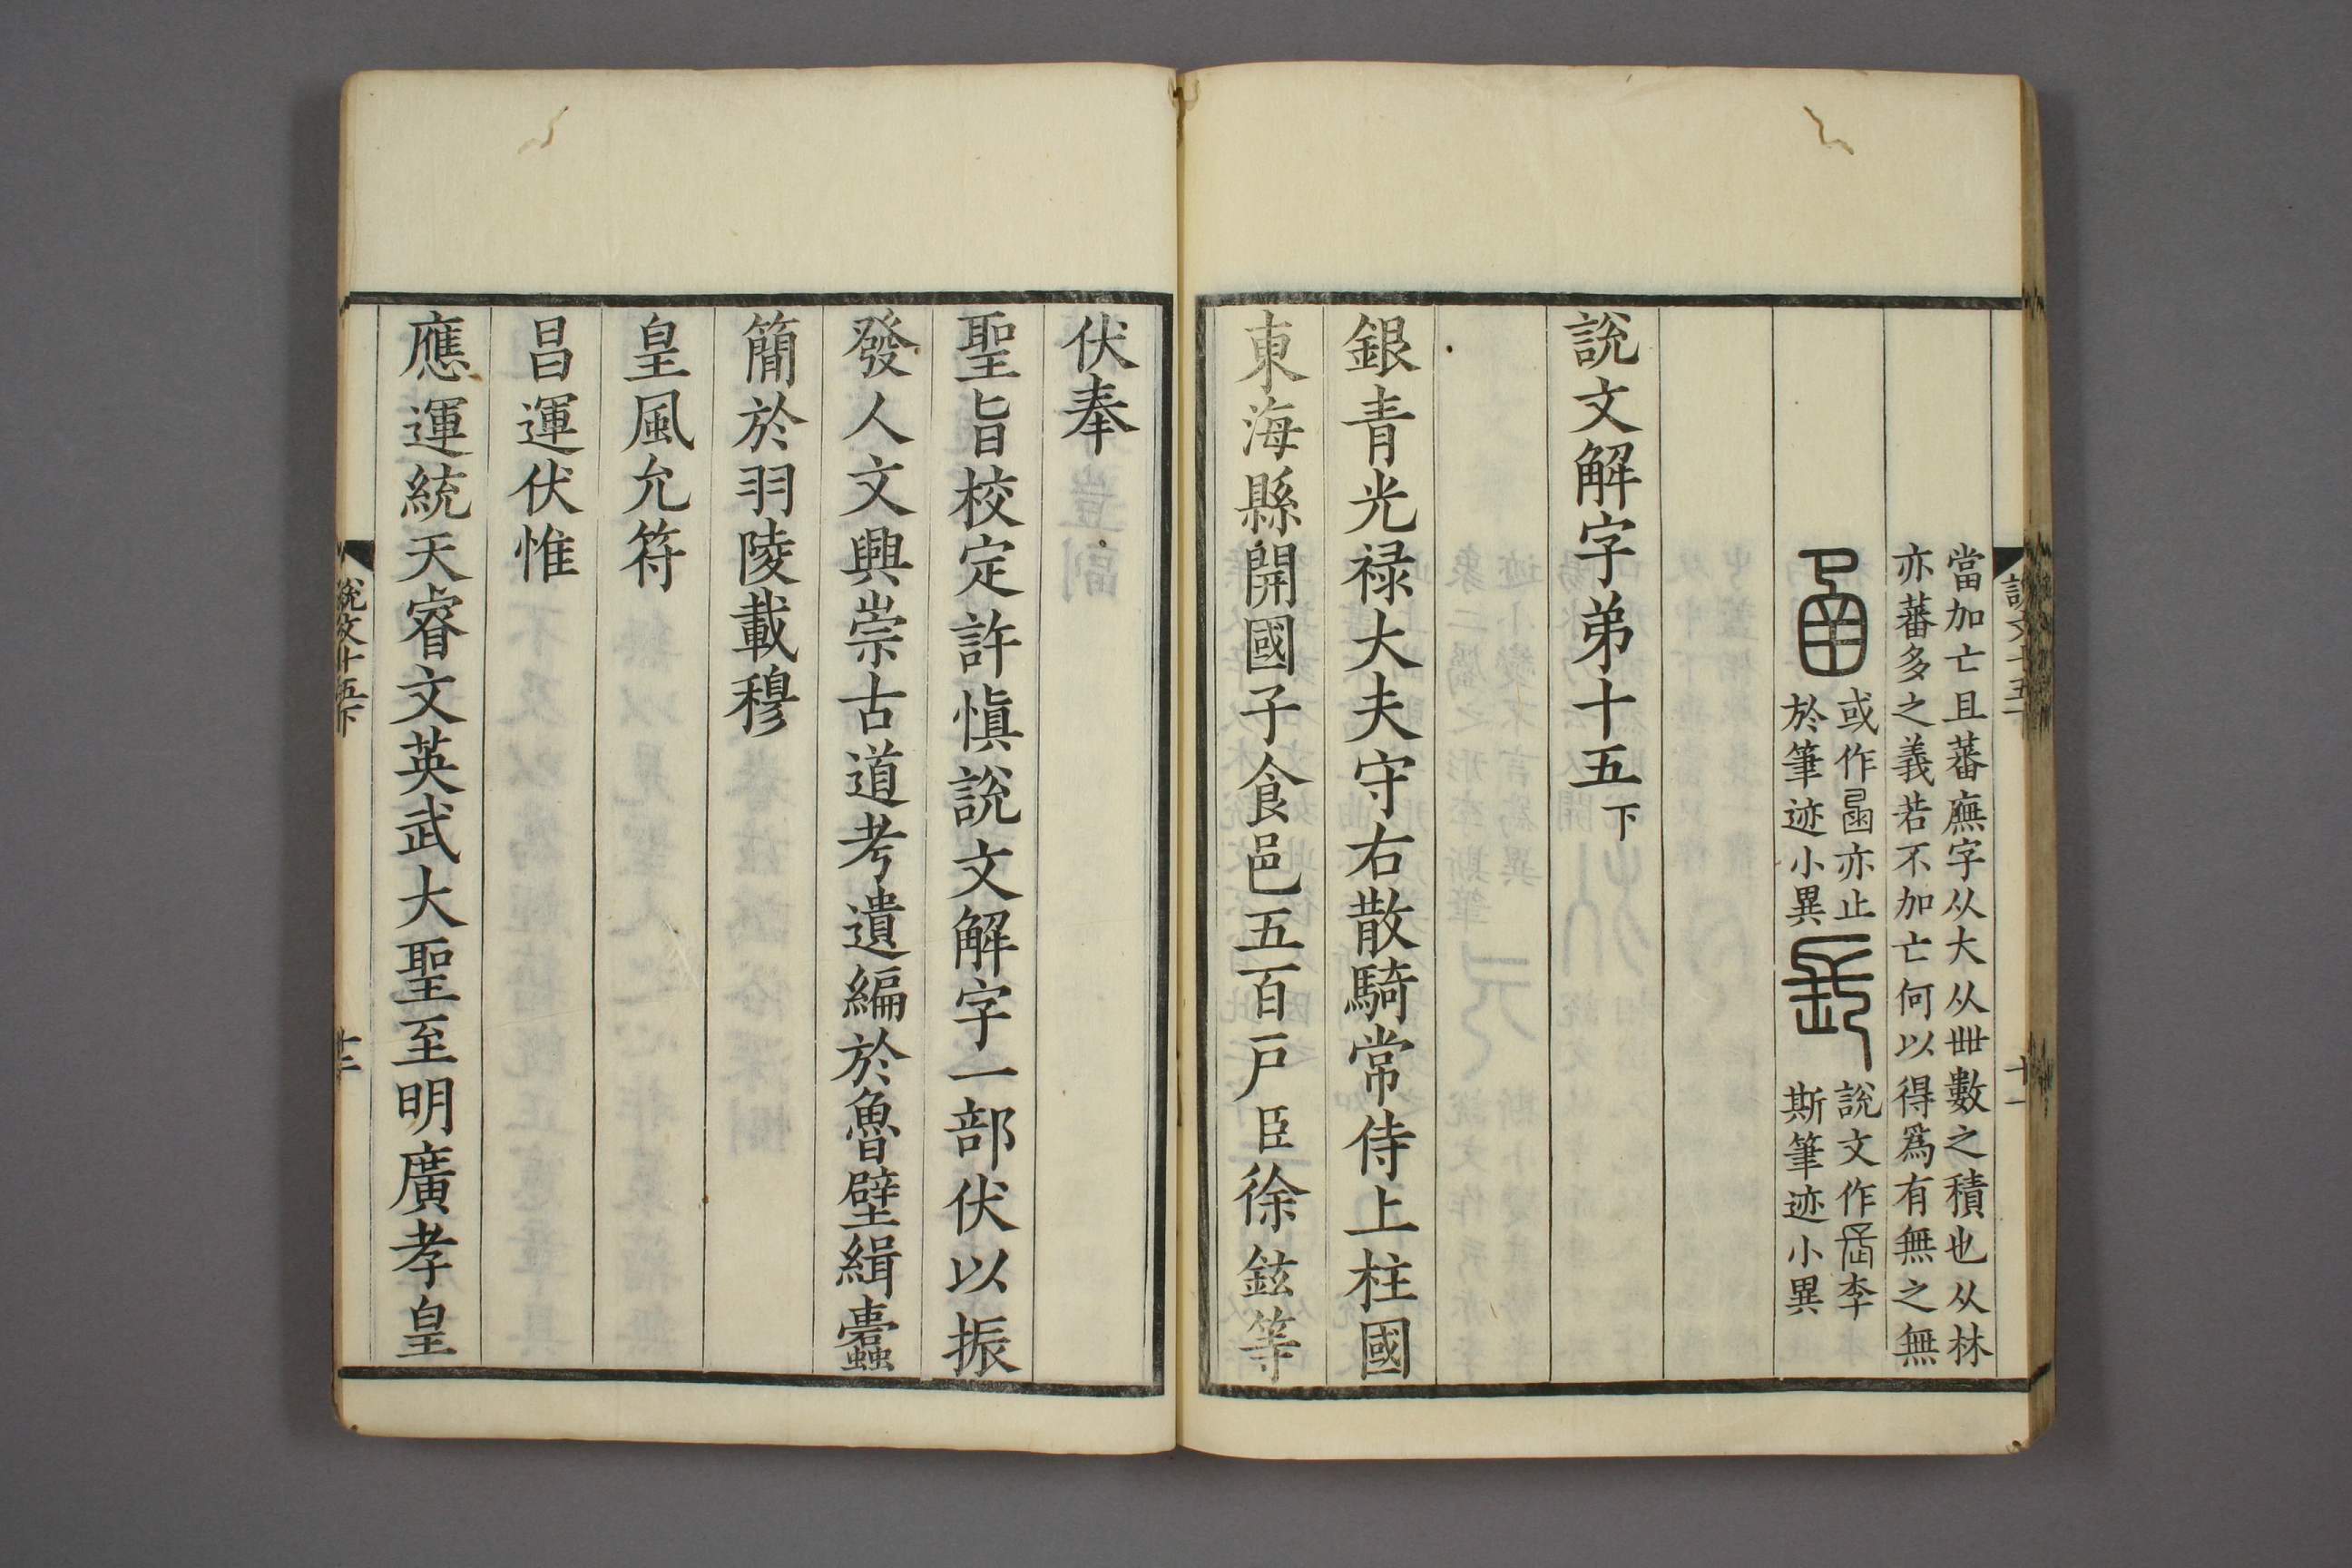 當加亡且蕃廡字从大从卌數之積也从林
亦蕃多之義若不加亡何以得爲有無之無
或作𠚋亦止
於筆迹小異
說文作𤴓李
斯筆迹小異
說文解字弟十五下
銀青光祿大夫守右散騎常侍上柱國
東海縣開國子食邑五百戶臣徐鉉等
伏奉
聖旨校定許愼說文解字一部伏以振
發人文興崇古道考遺編於魯壁緝蠹
簡於羽陵載穆
皇風允符
昌運伏惟
應運統天睿文英武大聖至明廣孝皇
說文十五下
十二